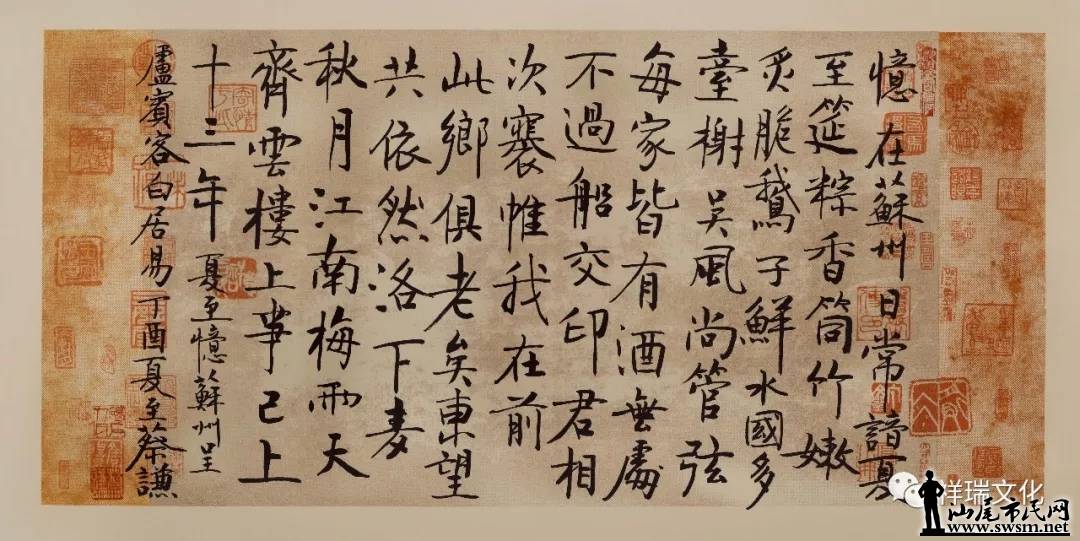 憶在蘇州日常諳夏
至筵粽香筒竹嫩
炙脆鵝子鮮水國多
臺榭吳風尚管弦
每家皆有酒無處
不過船交印君相
次褰帷我在前
此鄉俱老矣東望
共依然洛下麦
秋月江南梅雨天
齊雲樓上事已上
十三年 夏至憶蘇州呈
廬賓客白居易丁酉夏至蔡謙
祥瑞文化
汕尾市民网
www.swsm.net